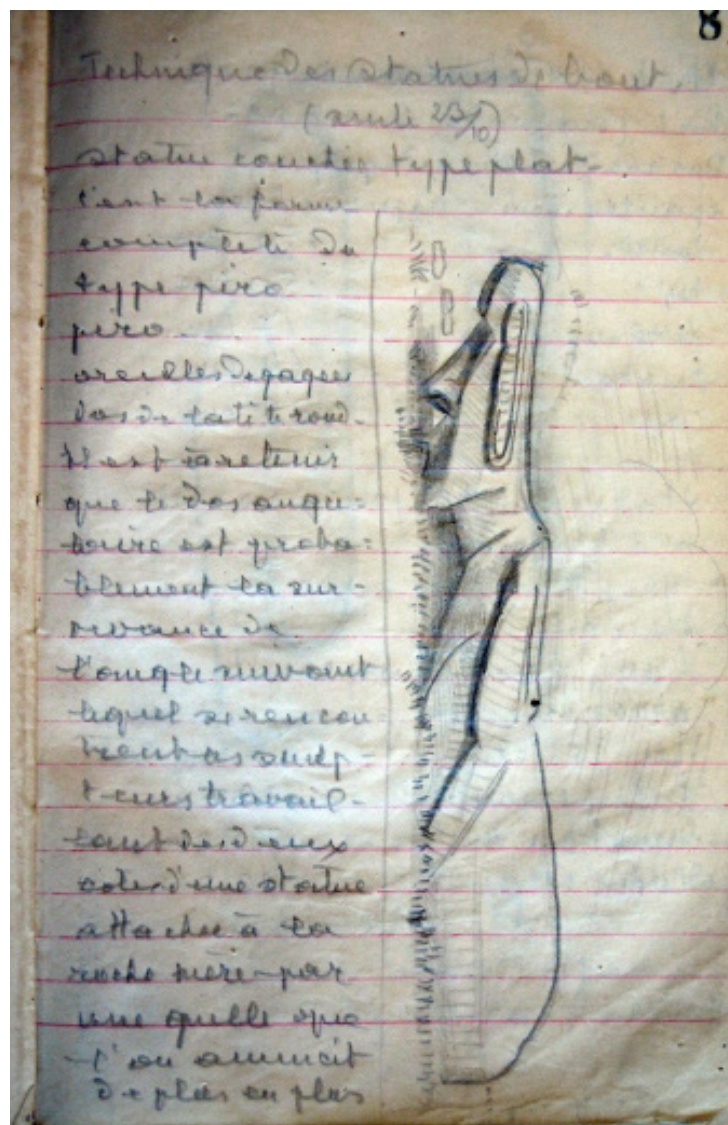 8
Technique des statues de bout,
(suite 23/10)
statue couchée type plat-
c'est la forme
complète du
type piro
piro
oreilles degagées
dos de tatite rond.
Il est à retenir
que le dos angu-
laire est proba=
blement la sur-
vivance de
l'angle suivant
lequel se rencon
trent les sculp-
teurs travail-
lant des deux
cotés d'une statue
attachée à la
roche mère-par
une quille que
l'on amincit
de plus en plus